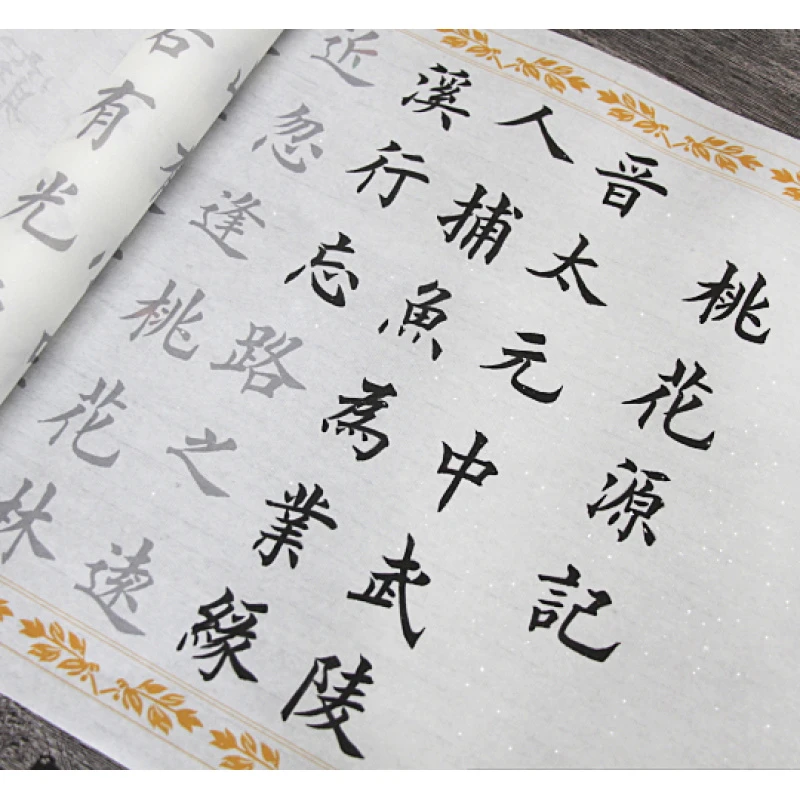 桃花源記
晋太元中武陵
人捕魚為業緣
溪行忘路之遠
近忽逢桃花林
有光